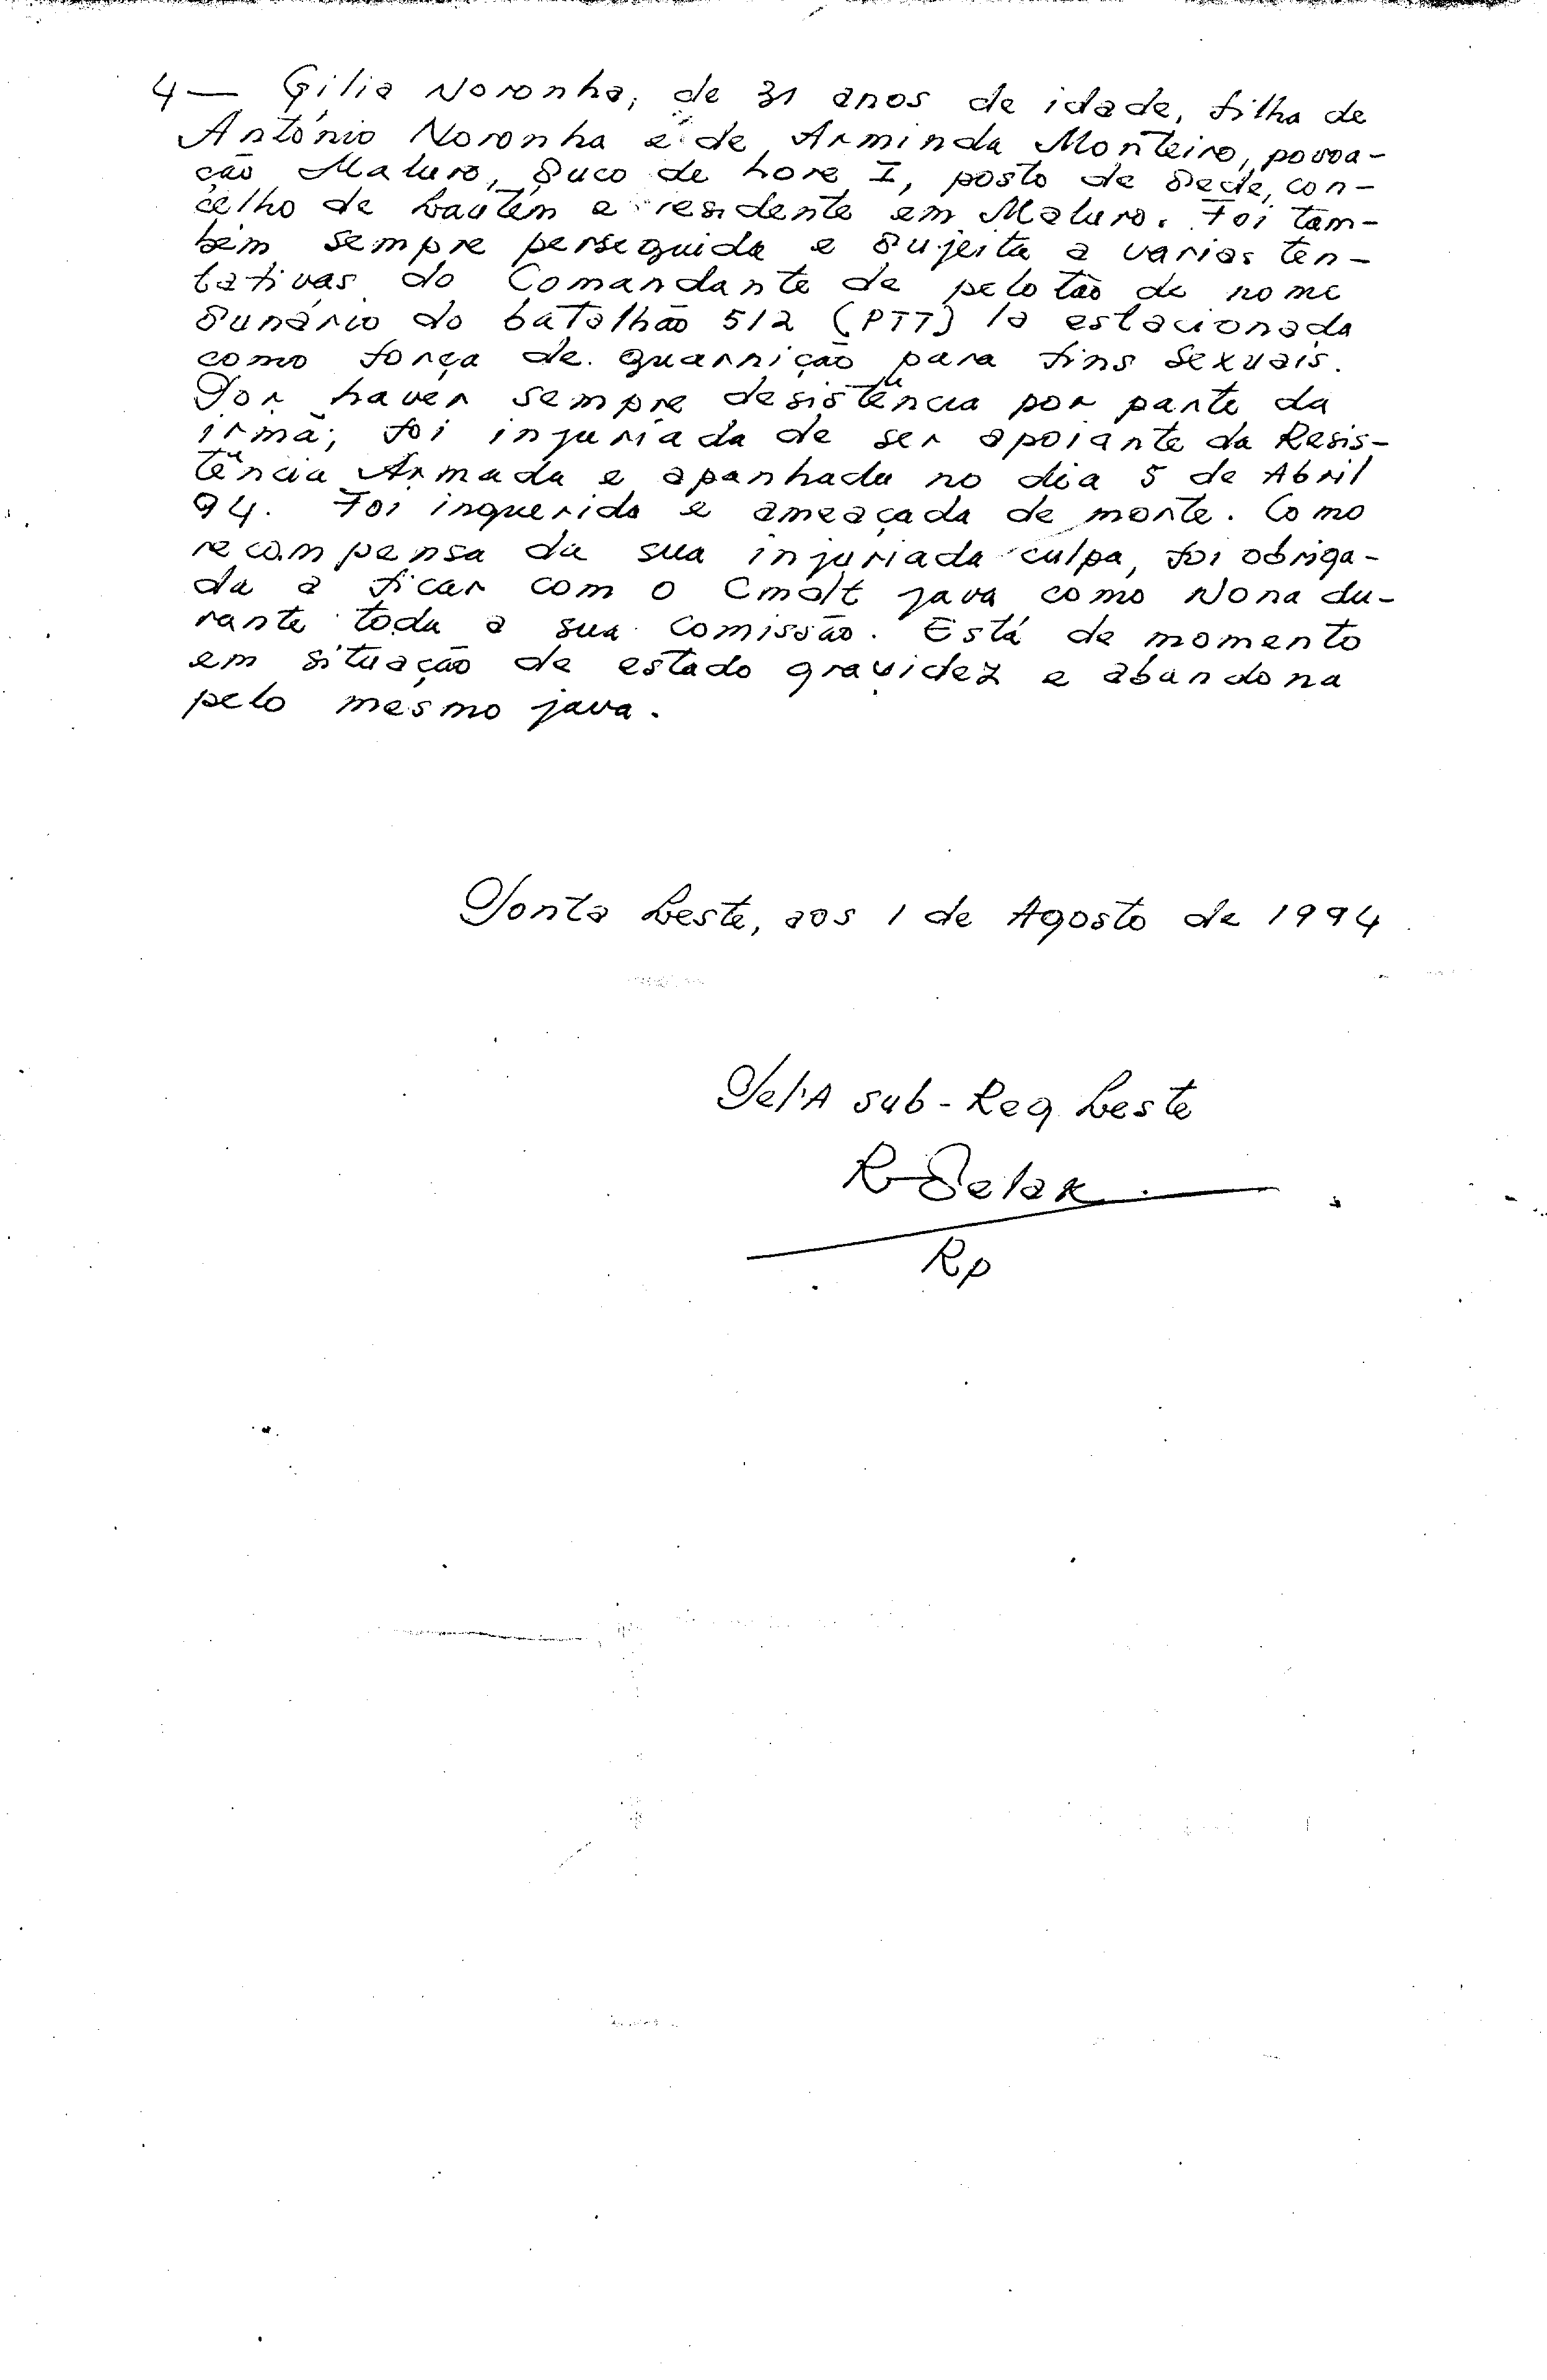 4 — Gilia Noronha, de 31 anos de idade, filha de
António Noronha e de Arminda Monteiro, povoa-
ção Maluro, Suco de Lore I, posto de Sede, con-
celho de Lautém e residente em Maluro. Foi tam-
bém sempre perseguida e sujeita a varias ten-
tativas do Comandante de pelotão de nome
Sunário do batalhão 512 (PTT) lá estacionada
como força de guarnição para fins sexuais.
Por haver sempre desistência por parte da
irmã; foi injuriada de ser apoiante da Resis-
tência Armada e apanhada no dia 5 de Abril
94. Foi inquerida e ameaçada de morte. Como
recompensa da sua injuriada culpa, foi obriga-
da a ficar com o Cmdt java como Nona du-
rante toda a sua comissão. Está de momento
em situação de estado gravidez e abandona
pelo mesmo java.
Ponta Leste, aos 1 de Agosto de 1994
Pel'A Sub-Reg Leste
R Selak
Rp